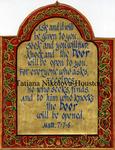 Ask and it will
be given to you.
Seek and you will find.
Knock and the Door
will be open to you.
For everyone who asks,
receives,
he who seeks, finds
and to him who knocks
the Door
will be opened.
Matt. 7:7-8
Tatiana Nikolova-Houston